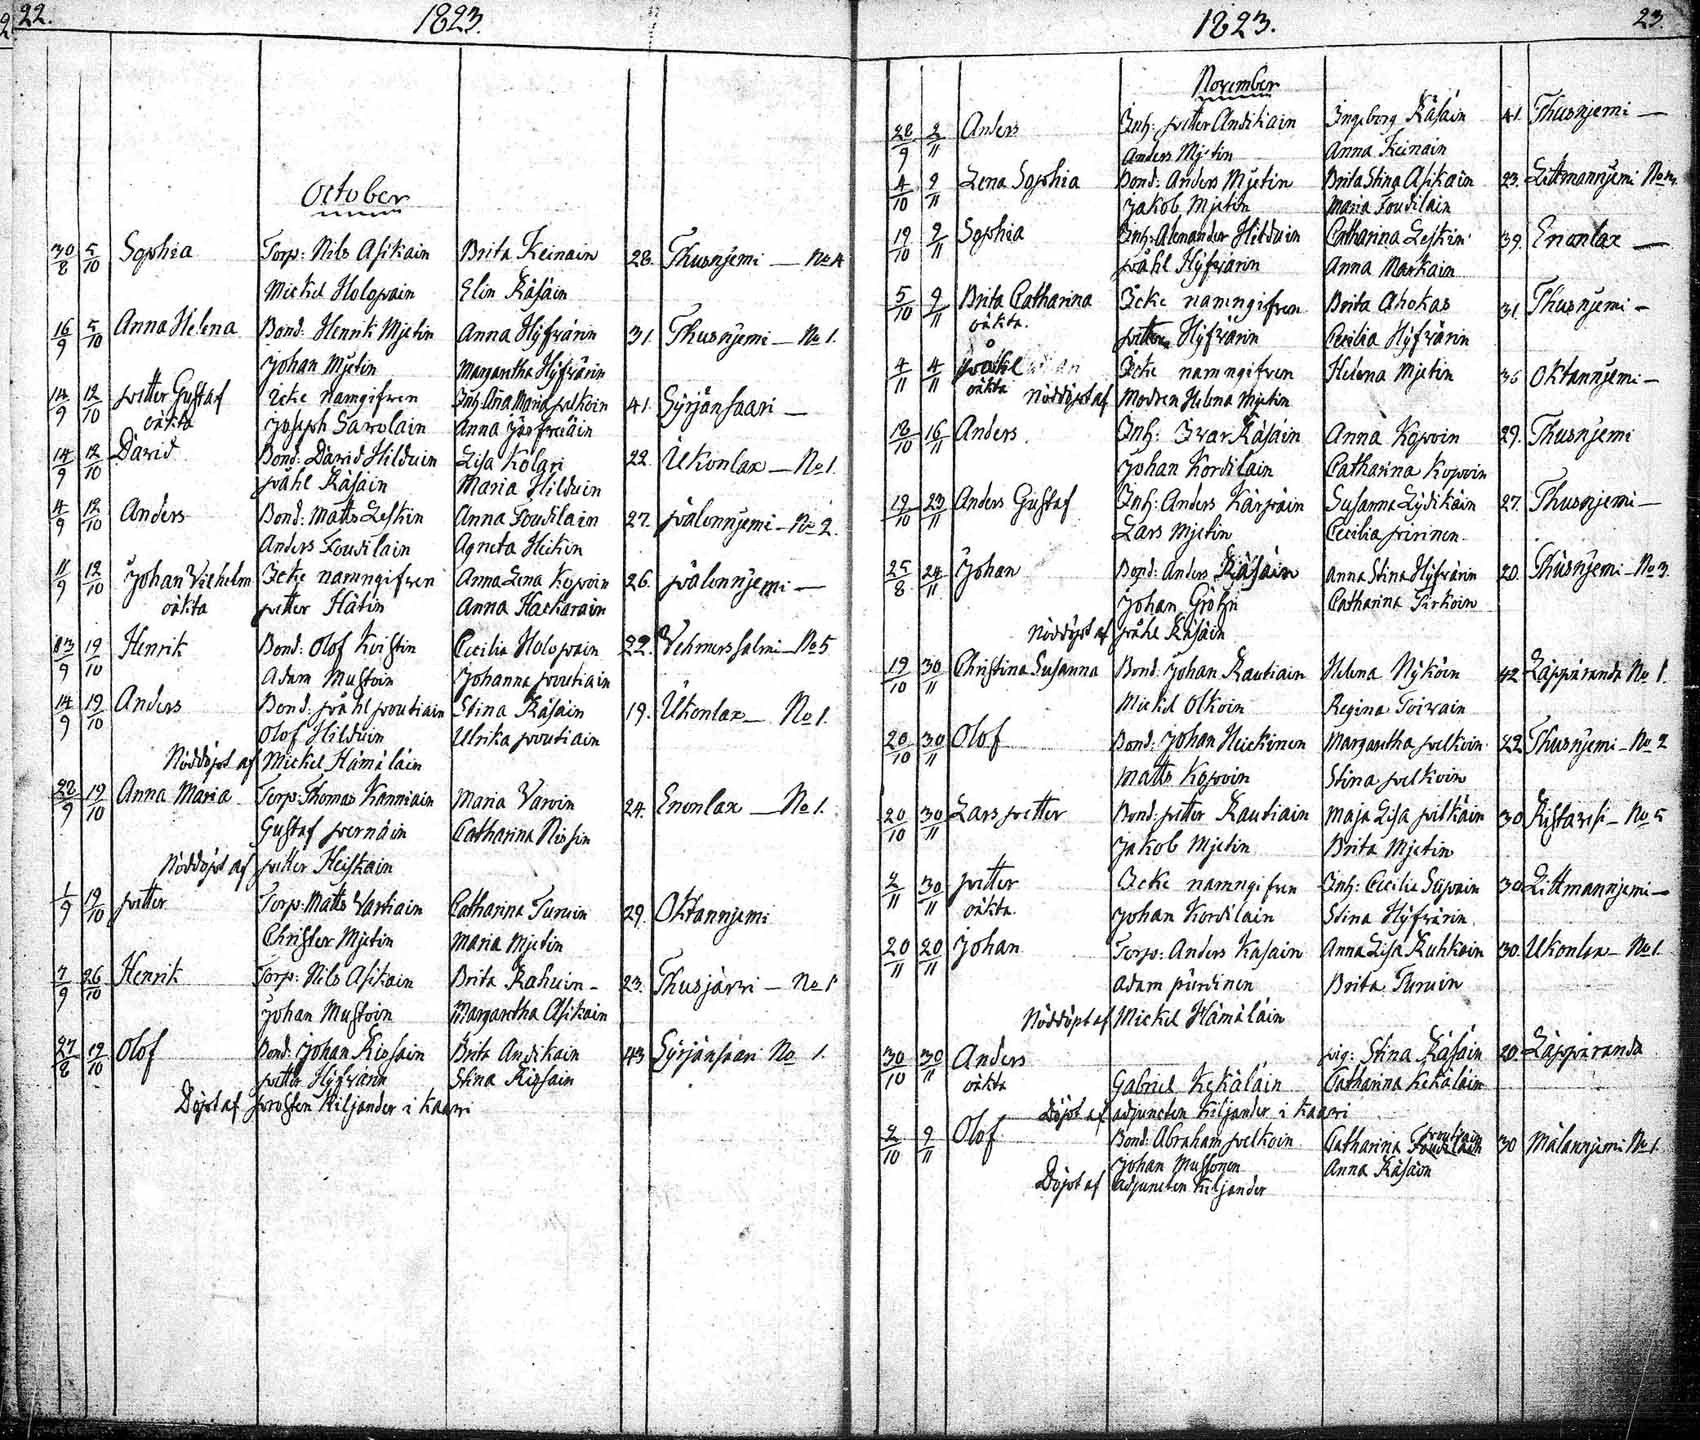 22.
1823.
October
30/8 5/10 Sophia Torp: Nils Asikain Brita Keinain 28. Thusnjemi — No 4
Mickel Holopain Elin Räsäin
16/9 5/10 Anna Helena Bond: Henrik Mjetin Anna Hyfvärin 31. Thusnjemi — No 1.
Johan Mjetin Margaretha Hyfvärin
14/9 12/10 Petter Gustaf Icke namgifven Inh: Lina Maria Pelkoin 41. Syrjänsaari —
oäkta Joseph Savolain Anna
14/9 12/10 David Bond: David Hilduin Lisa Kolari 22. Ukonlax — No 1.
Påhl Räsäin Maria Hilduin
4/9 12/10 Anders Bond: Matts Leskin Anna Toudilain 27. Pälonnjemi — No 2.
Anders Toudilain Agneta Heikin
11/9 12/10 Johan Vilhelm Icke namngifven Anna Lena Kopoin 26. Pälonnjemi —
oäkta Petter Hätin Anna Hackarain
13/9 19/10 Henrik Bond: Olof Koistin Cecilia Holopain 22. Vehmersalmi — No 5
Adam Mustoin Johanna Poutiain
14/9 19/10 Anders Bond: Påhl Poutiain Stina Räsäin 19. Ukonlax — No 1.
Olof Hilduin Ulrika Poutiain
Nöddöpt af Mickel Hämäläin
22/9 19/10 Anna Maria Torp: Thomas Kanniain Maria Varoin 24. Enonlax — No 1.
Gustaf Pernäin Catharina Rissin
Nöddöpt af Petter Heiskain
1/9 19/10 Petter Torp: Matts Vartiain Catharina Turuin 29. Oktannjemi
Christer Mjetin Maria Mjetin
7/9 26/10 Henrik Torp: Nils Asikain Brita Kahuin — 23. Thusjärvi — No 1
Johan Mustoin Margaretha Asikain
27/8 19/10 Olof Bond: Johan Ripsain Brita Andikain 43 Syrjänsaari No 1.
Petter Hyfvärin Stina Ripsain
Döpt af Prosten Kiljander i Kaavi
1823.
23.
November
28/9 2/11 Anders Inh: Petter Andikain Ingeborg Räsäin 41. Thusnjemi —
Anders Mjetin Anna Keinain
4/10 9/11 Lena Sophia Bond: Anders Mjetin Brita Stina Asikain 23. Littmannjemi
Jakob Mjetin Maria Toudilain
19/10 9/11 Sophia Inh: Alexander Hilduin Catharina Leskin 39. Enonlax —
Påhl Hyfvärin Anna Markain
5/10 9/11 Brita Catharina Icke namngifven Brita Ahokas 31. Thusnjemi —
oäkta. Petter Hyfvärin Cecilia Hyfvärin
4/11 4/11 Påhl Icke namngifven Helena Mjetin 36 Oktannjemi —
oäkta Nöddöpt af Modren Helena Mjetin
18/10 16/11 Anders Inh: Ivar Räsäin Anna Kopoin 29. Thusnjemi
Johan Kordilain Catharina Kopoin
19/10 23/11 Anders Gustaf Inh: Anders Kärpäin Susanna Lydikäin 27. Thusnjemi —
Lars Mjetin Cecilia Pirinen
25/8 24/11 Johan Bond: Anders Räsäin Anna Stina Hyfvärin 20. Thusnjemi — No 3
Johan Gröhn Catharina Tirkoin
Nöddöpt af Påhl Räsäin
19/10 30/11 Christina Susanna Bond: Johan Rautiain Helena Nyköin 42 Läppäranda No 1.
Mickel Olkoin Regina Toivain
20/10 30/11 Olof Bond: Johan Heickinen Margaretha Pelkoin 22 Thusnjemi — No 2
Matts Kopoin Stina Pelkoin
20/10 30/11 Lars Petter Bond: Petter Rautiain Maja Lisa Pitkäin 30 Ristavesi — No 5
Jakob Mjetin Brita Mjetin
2/11 30/11 Petter Icke namngifven Inh: Cecilia Sepain 30 Littmannjemi —
oäkta. Johan Kordilain Stina Hyfvärin
20/11 20/11 Johan Torp: Anders Kasain Anna Lisa Kuhkoin 30. Ukonlax — No 1.
Adam Purdinen Brita Turuin
Nöddöpt af Mickel Hämäläin
30/10 30/11 Anders pig: Stina Räsäin 20. Läppäranda
oäkta Gabriel Kekäläin Catharina Kekäläin
Döpt af adjuncten Kiljander i Kaavi
2/10 9/11 Olof Bond: Abraham Pelkoin Catharina Poutiain 30 Mälannjemi No 1.
Johan Mustonen Anna Räsäin
Döpt af Adjuncten Kiljander